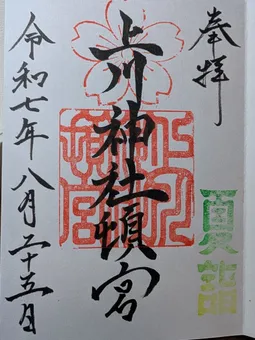 奉拝
夏詣
上川神社頓宮
令和七年八月二十五日